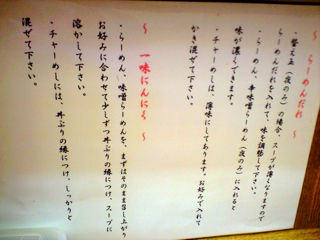 ～ らーめんだれ ～
・替え玉（夜のみ）の場合、スープが薄くなりますので
らーめんだれを入れて、味を調整して下さい。
・らーめん、辛味噌らーめん（夜のみ）に入れると
味が濃くできます。
・チャーめしは、薄味にしてあります。お好みで入れて
かき混ぜて下さい。
～ 一味にんにく ～
・らーめん、味噌らーめんを、まずはそのまま召し上がり
お好みに合わせて少しずつ丼ぶりの縁につけ、スープに
溶かして下さい。
・チャーめしには、丼ぶりの縁につけ、しっかりと
混ぜて下さい。